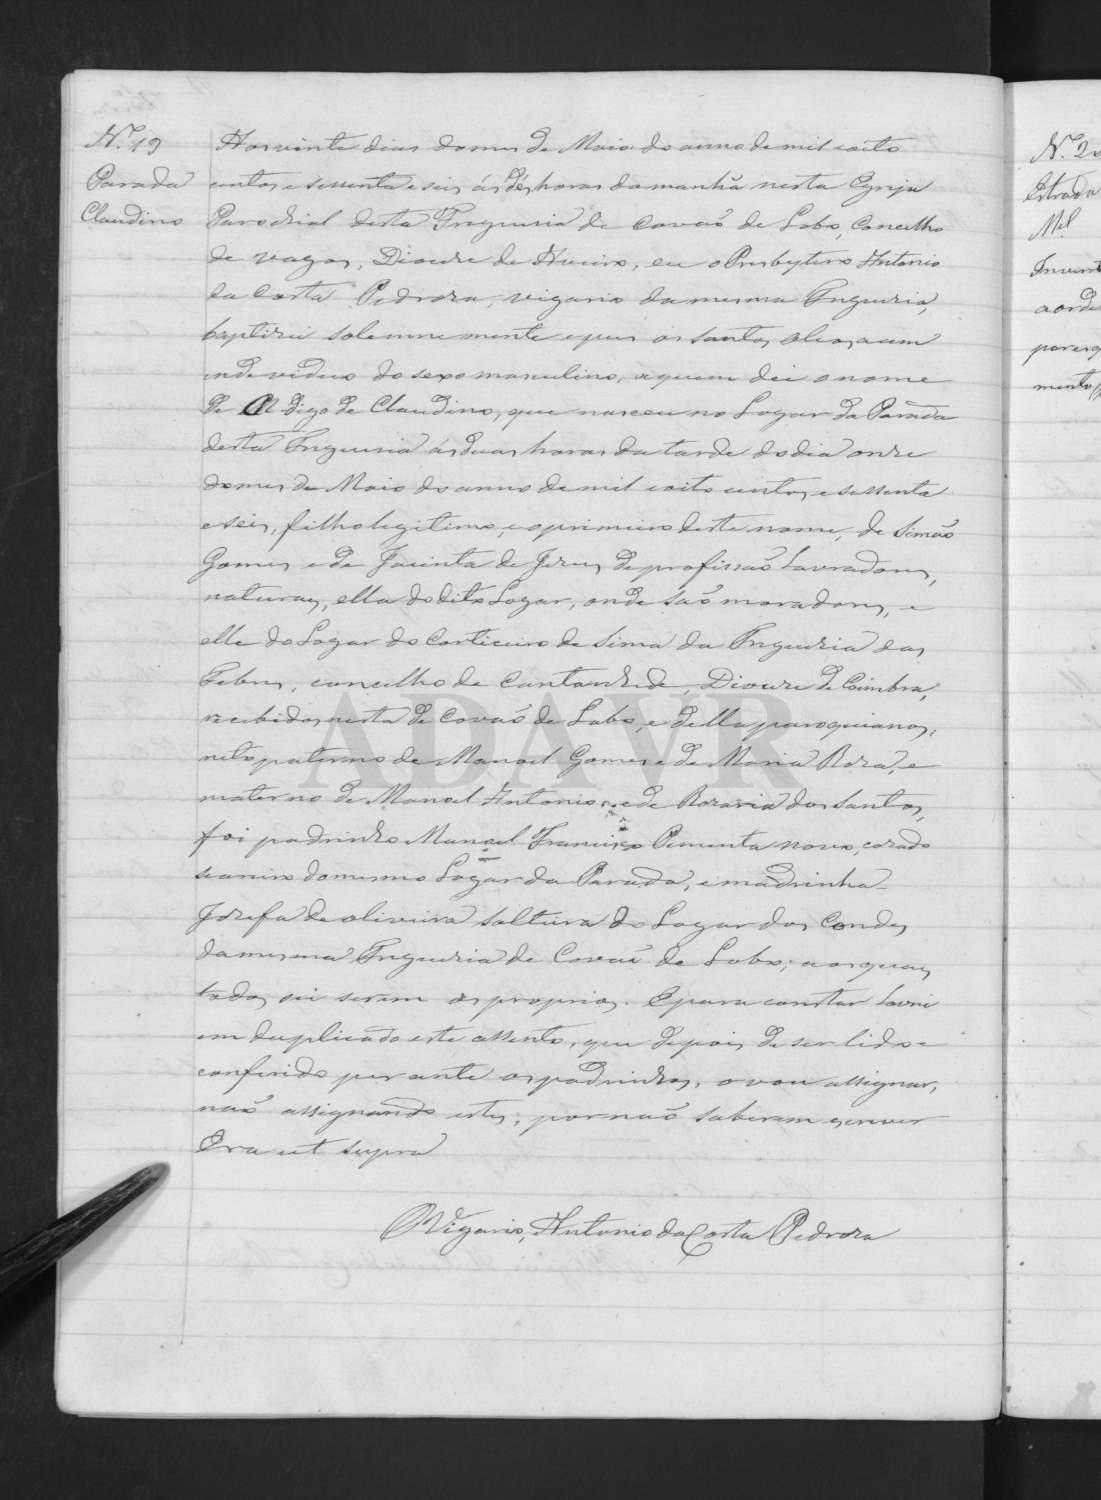 N.º 19
Parada
Claudino
Aos vinte dias do mes de Maio do anno de mil e oito
centos e sessenta e seis ás dés horas da manhã nesta Egreja
Parochial desta Freguesia de Covaõ de Lobo, Concelho
de Vagos, Diocese de Aveiro, eu o Presbytero Antonio
da Costa Pedroza, vigario da mesma Freguesia,
baptizei solemnemente e pus os santos oleos a um
individuo do sexo masculino, a quem dei o nome
de digo de Claudino, que nasceu no Logar da Parada
desta Freguesia ás duas horas da tarde do dia onze
do mes de Maio do anno de mil e oito centos e sessenta
e seis, filho legitimo, e o primeiro deste nome, de Simaõ
Gomes e de Jacinta de Jesus de profissaõ Lavradores,
naturaes, ella do dito Logar, onde saõ moradores, e
elle do Logar do Corticeiro de Sima da Freguesia das
Febres, concelho de Cantanhede, Diocese de Coimbra,
recebidos nesta de Covaõ de Lobo, e della paroquianos,
neto paterno de Manoel Gomes e de Maria Roza, e
materno de Manoel Antonio, e de Rozaria dos Santos,
foi padrinho Manoel Francisco Pimenta novo, cazado
seareiro do mesmo Logar da Parada, e madrinha
Jozefa de oliveira solteira do Logar dos Condes
da mesma Freguesia de Covaõ de Lobo; aos quaes
todos sei serem os proprios. E para constar lavrei
em duplicado este assento, que depois de ser lido e
conferido perante os padrinhos, o vou assignar,
naõ assignando estes, por naõ saberem escrever
Era ut supra
O Vigario, Antonio da Costa Pedroza
N.º 20
Estrada
Mel
ADAVR